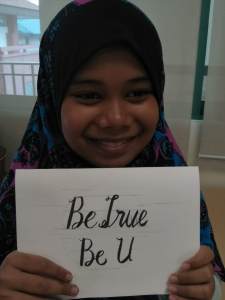 Be True
Be U